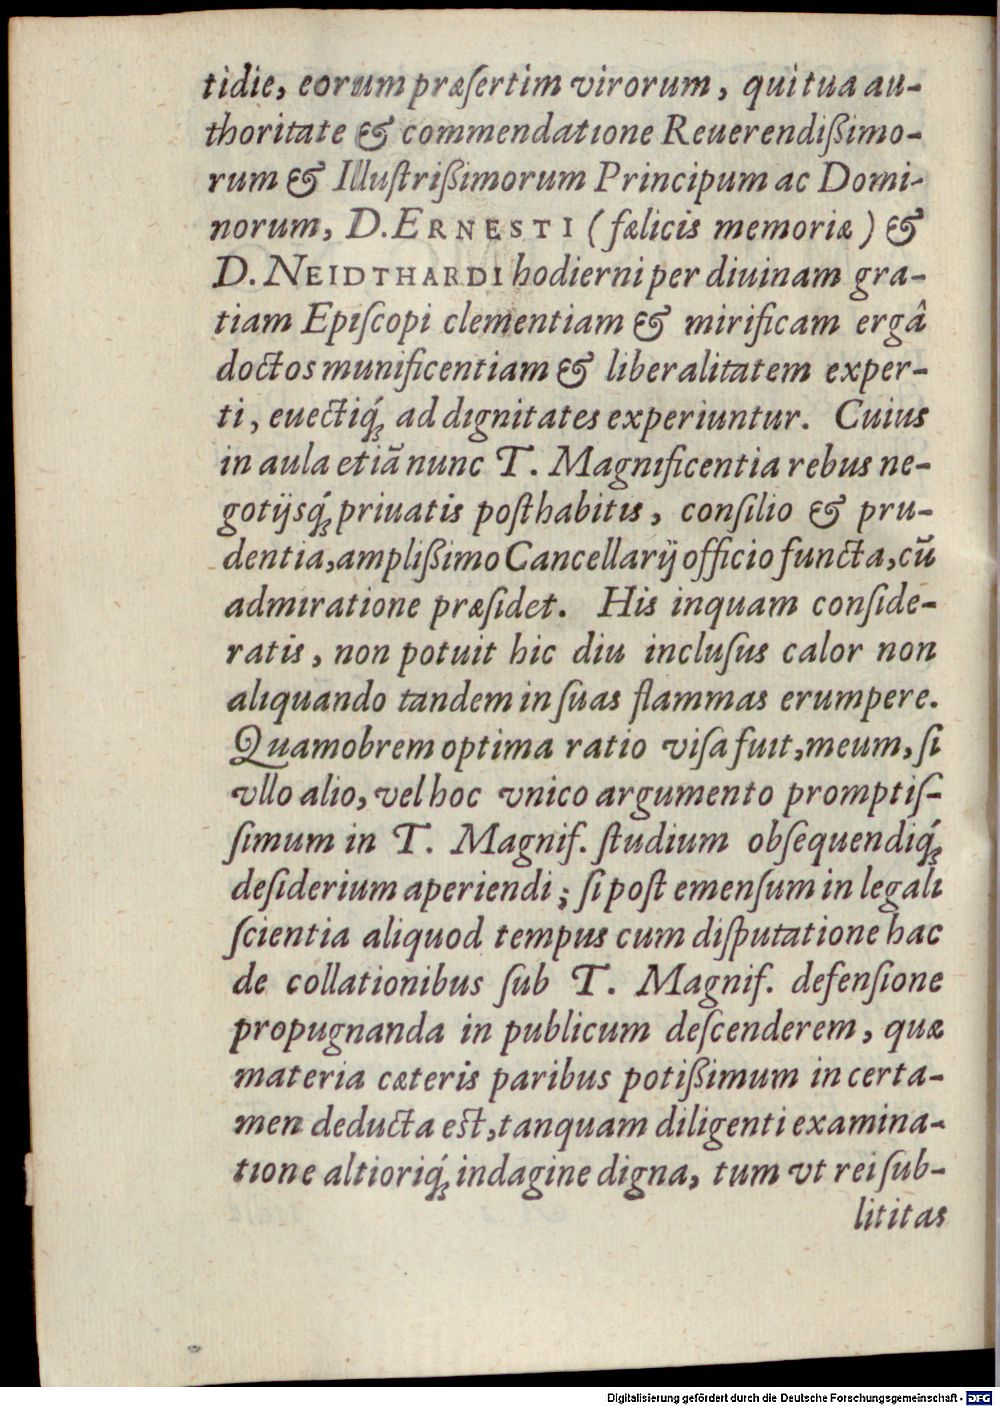 tidie, eorum præſertim virorum, qui tua au-
thoritate & commendatione Reuerendißimo-
rum & Illuſtrißimorum Principum ac Domi-
norum, D. ERNESTI (fælicis memoriæ) &
D. NEIDTHARDI hodierni per diuinam gra-
tiam Epiſcopi clementiam & mirificam ergâ
doctos munificentiam & liberalitatem exper-
ti, euectiq́ꝫ ad dignitates experiuntur. Cuius
in aula etiã nunc T. Magnificentia rebus ne-
gotijsq́ꝫ priuatis poſthabitis, conſilio & pru-
dentia, amplißimo Cancellarij officio functa, cũ
admiratione præſidet. His inquam conſide-
ratis, non potuit hic diu incluſus calor non
aliquando tandem in ſuas flammas erumpere.
Quamobrem optima ratio viſa fuit, meum, ſi
vllo alio, vel hoc vnico argumento promptiſ-
ſimum in T. Magnif. ſtudium obſequendiq́ꝫ
deſiderium aperiendi; ſi poſt emenſum in legali
ſcientia aliquod tempus cum diſputatione hac
de collationibus ſub T. Magnif. defenſione
propugnanda in publicum deſcenderem, quæ
materia cæteris paribus potißimum in certa-
men deducta eſt, tanquam diligenti examina-
tione altioriq́ꝫ indagine digna, tum vt rei ſub-
lititas
Digitalisierung gefördert durch die Deutsche Forschungsgemeinschaft - DFG